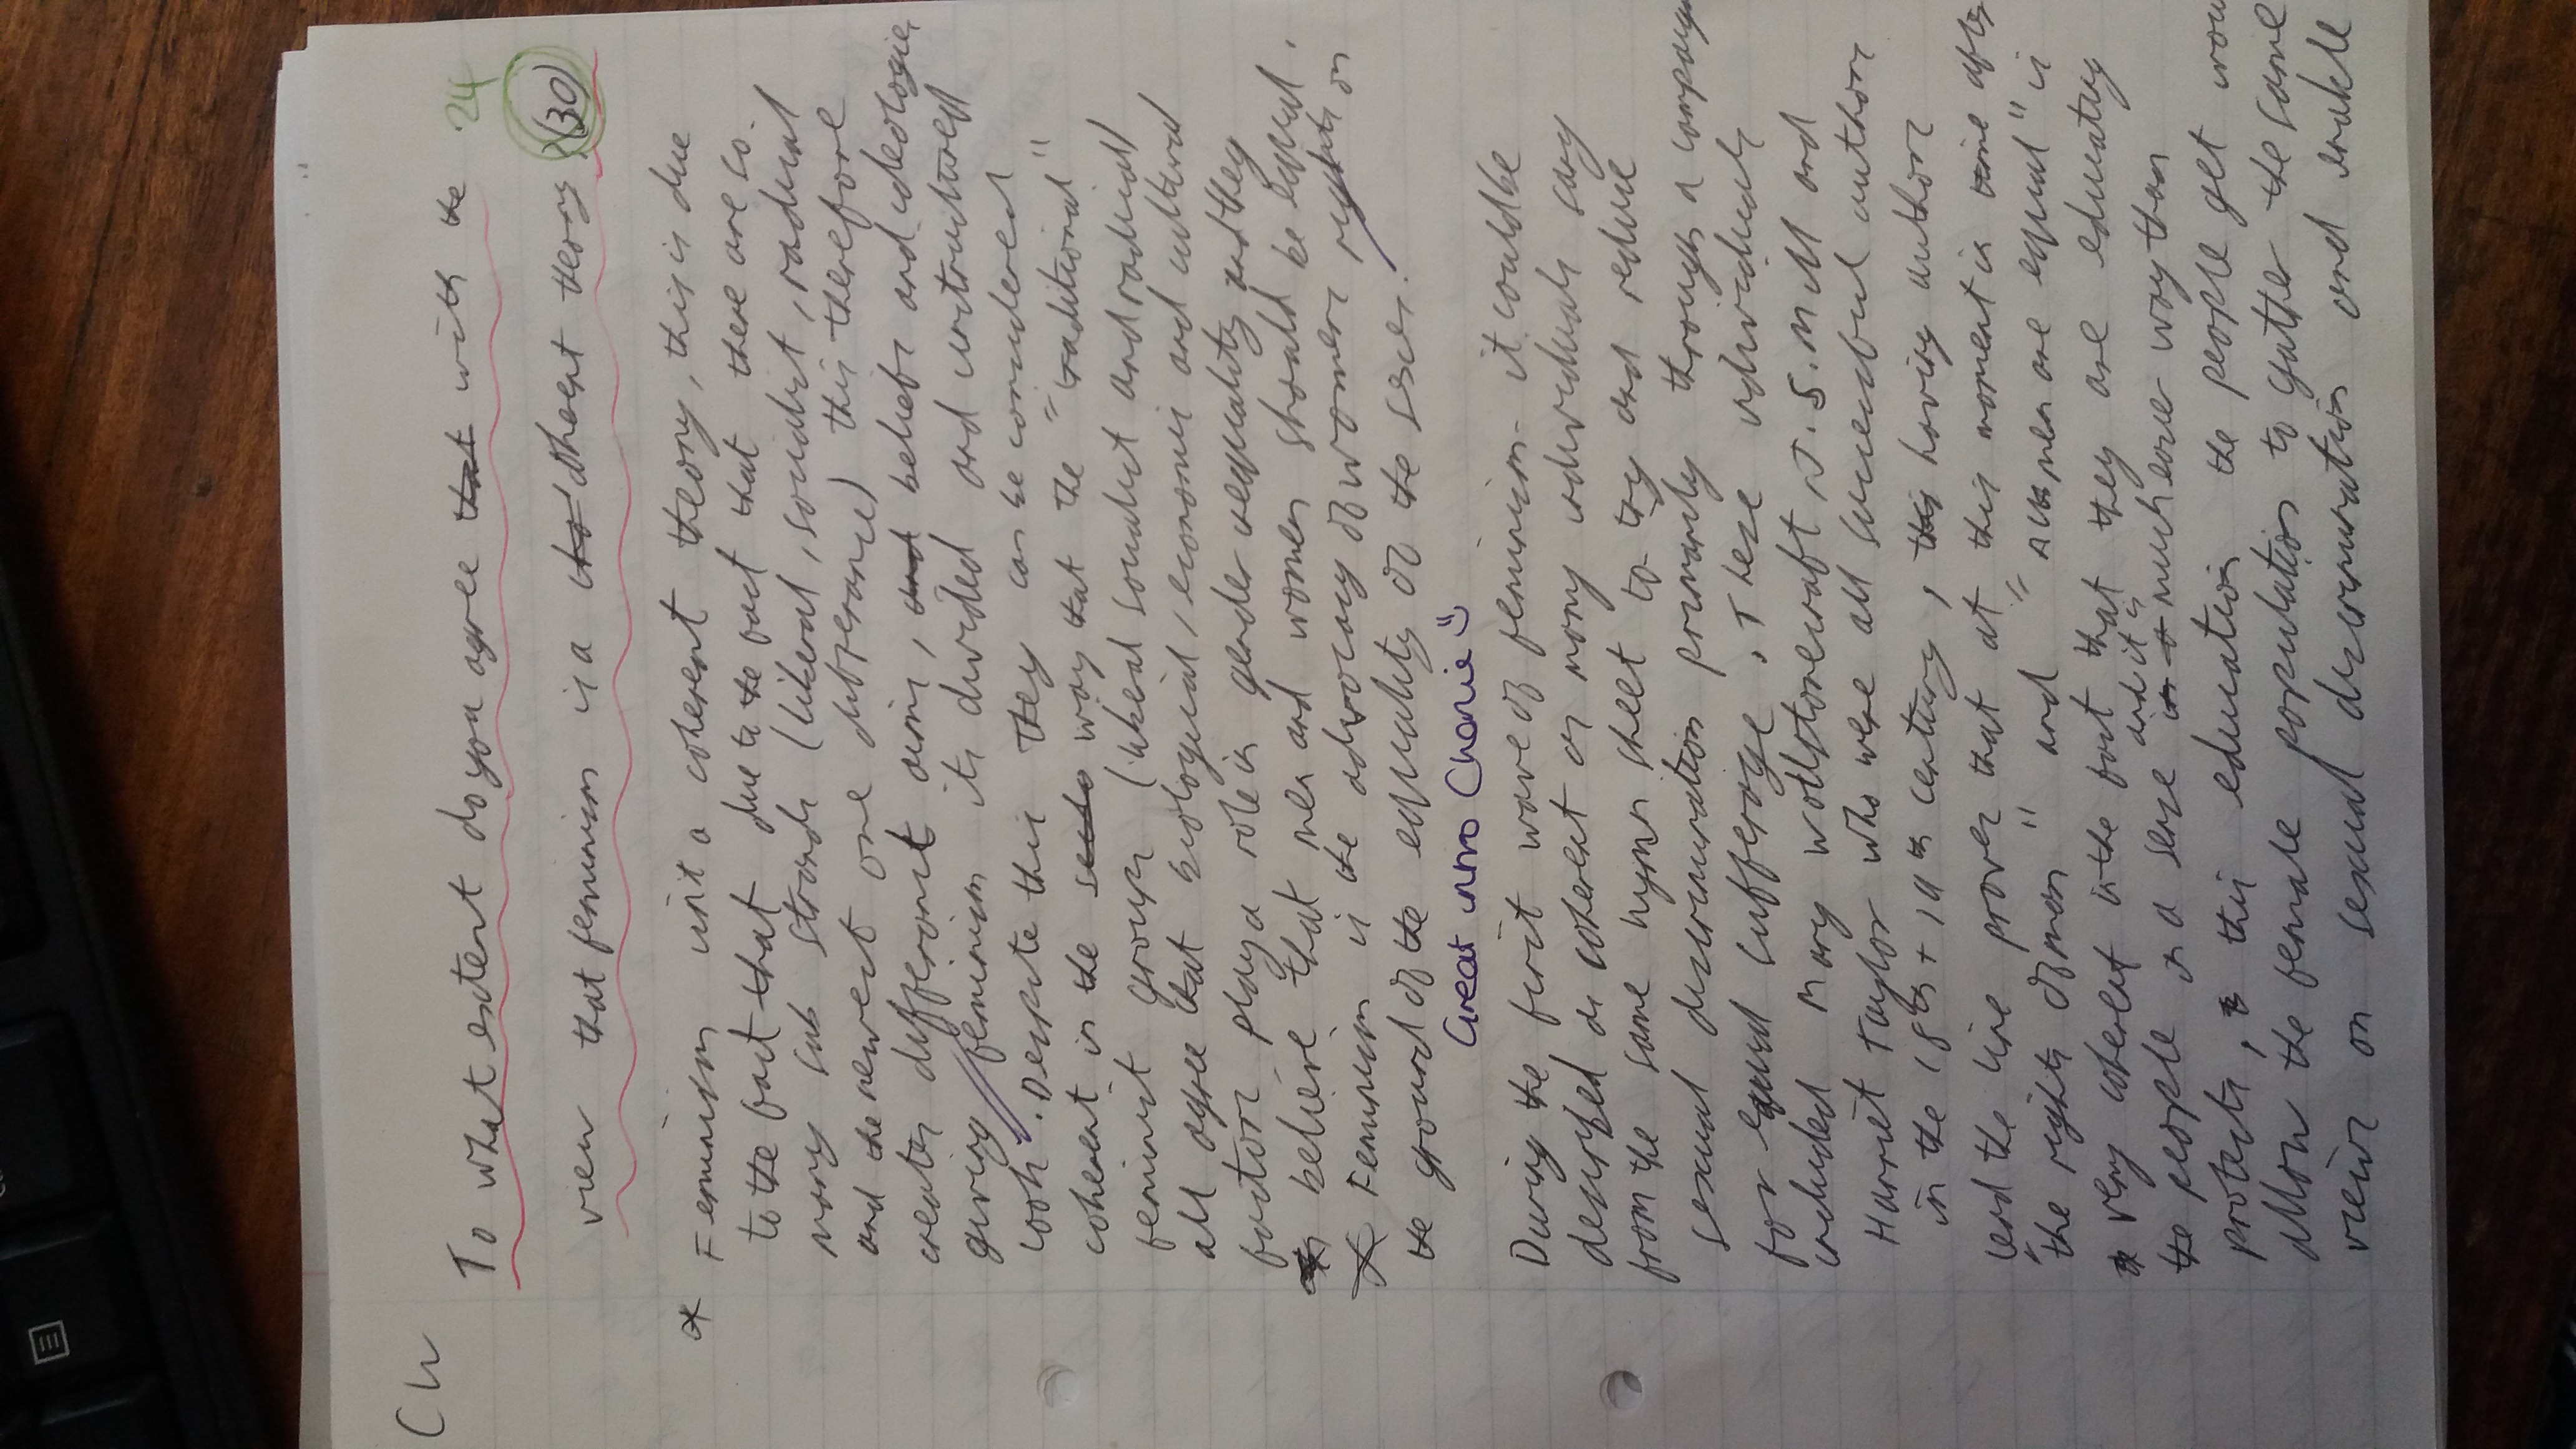 CW
To what extent do you agree that with the 24
view that feminism is a coherent theory (30)
* Feminism isn't a coherent theory, this is due
to the fact that due to the fact that there are so
many sub strands (liberal, socialist, radical
and the newest one difference) this therefore
creates different aims, and beliefs and ideologies
giving feminism its divided and unstructured
look. Despite this they can be considered
coherent in the way that the "traditional"
feminist groups (liberal socialist and radical)
all agree that biological, economic and cultural
factors play a role in gender inequality and they
believe that men and women should be equal.
* Feminism is the advocacy of women rights on
the ground of the equality of the sexes.
Great intro Charlie
During the first wave of feminism it could be
described as coherent as many individuals sang
from the same hymn sheet to try and reduce
sexual discrimination primarily through a campaign
for equal sufferage. These individuals
included Mary Wollstonecraft, J.S. Mill and
Harriet Taylor who were all successful authors
in the 18th + 19th century, this having authors
lead the line proves that at this moment in time after
"the rights of man" and "All men are equal" is
very coherent in the fact that they are educating
the people in a sense and it's much easier way than
protests, this education the people get
allow the female population to gather the same
views on sexual discrimination and enable